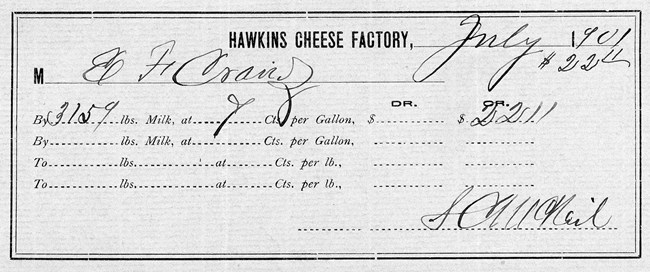 HAWKINS CHEESE FACTORY, July 1901
$22 11
M E F Craig
DR. CR.
By 3159 lbs. Milk, at 7 Cts. per Gallon, $ $ 22 11
By lbs. Milk, at Cts. per Gallon,
To lbs. at Cts. per lb.,
To lbs. at Cts. per lb.,